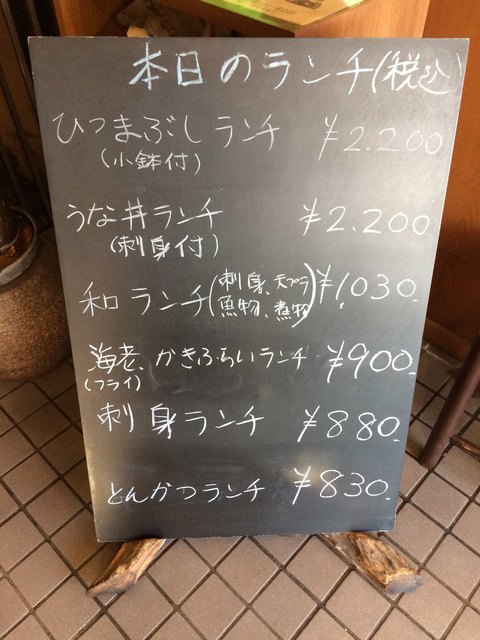 本日のランチ(税込)
ひつまぶしランチ ¥2.200
(小鉢付)
うな丼ランチ ¥2.200
(刺身付)
和ランチ(刺身、天プラ 魚物、煮物) ¥1,030.
海老、かきふらいランチ ¥900.
(フライ)
刺身ランチ ¥880.
とんかつランチ ¥830.